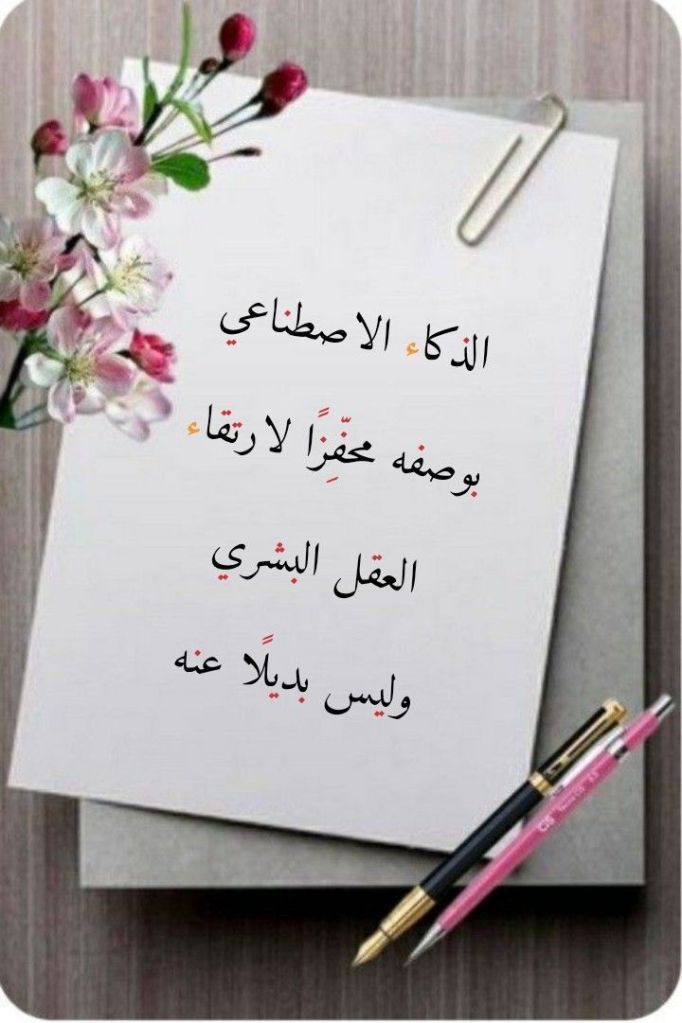 الذكاء الاصطناعي
بوصفه محفّزًا لارتقاء
العقل البشري
وليس بديلًا عنه